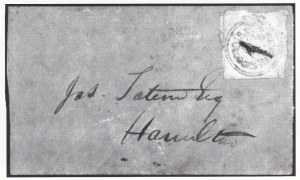 Jas. Tatem Esq
Hamilton